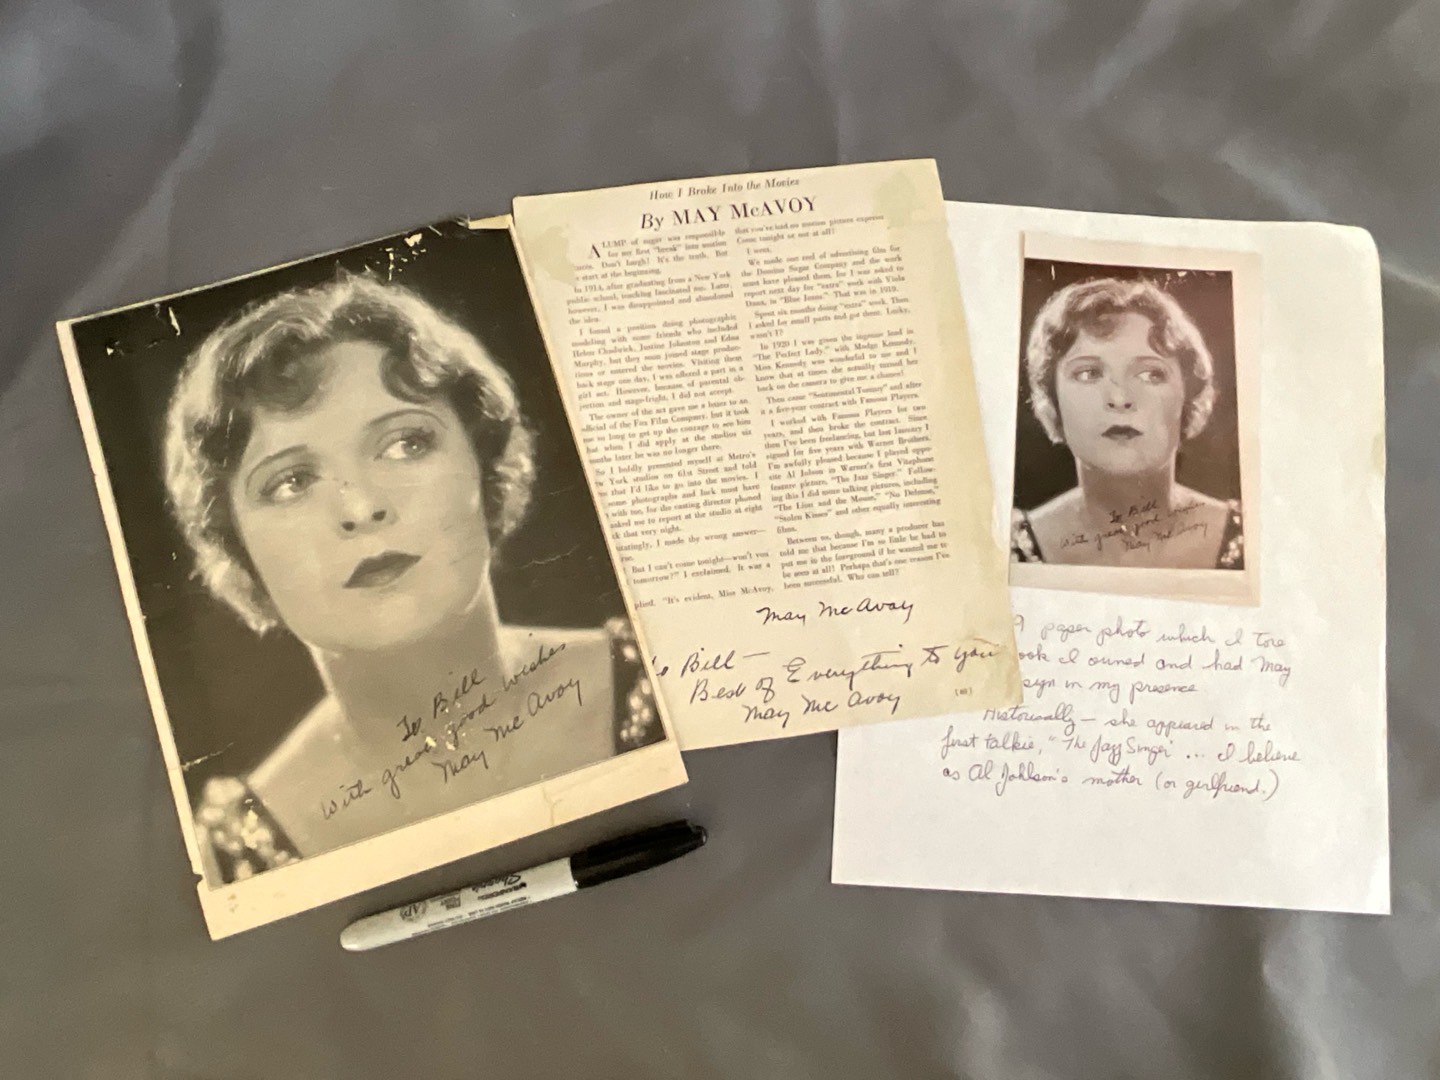 To Bill
With great good wishes
May Mc Avoy
How I Broke Into the Movies
By MAY McAVOY
A LUMP of sugar was responsible
for my first "break" into motion
Don't laugh! It's the truth. But
start at the beginning.
In 1914, after graduating from a New York
public school, teaching fascinated me. Later,
however, I was disappointed and abandoned
the idea.
I found a position doing photographic
modeling with some friends who included
Helen Chadwick, Justine Johnston and Edna
Murphy, but they soon joined stage produc-
tions or entered the movies. Visiting them
back stage one day, I was offered a part in a
girl act. However, because of parental ob-
jection and stage-fright, I did not accept.
The owner of the act gave me a letter to an
official of the Fox Film Company, but it took
me so long to get up the courage to see him
that when I did apply at the studios six
months later he was no longer there.
So I boldly presented myself at Metro's
York studios on 61st Street and told
that I'd like to go into the movies. I
some photographs and luck must have
with me, for the casting director phoned
asked me to report at the studio at eight
that very night.
I made the wrong answer—
But I can't come tonight—won't you
tomorrow?" I exclaimed. It was a
plied. "It's evident, Miss McAvoy,
that you've had no motion picture experience
Come tonight or not at all!
I went.
We made one reel of advertising film for
the Domino Sugar Company and the work
must have pleased them, for I was asked to
report next day for "extra" work with Viola
Dana, in "Blue Jeans." That was in 1919.
Spent six months doing "extra" work. Then
I asked for small parts and got them. Lucky,
wasn't I?
In 1920 I was given the ingenue lead in
"The Perfect Lady," with Madge Kennedy.
Miss Kennedy was wonderful to me and I
know that at times she actually turned her
back on the camera to give me a chance!
Then came "Sentimental Tommy" and after
it a five-year contract with Famous Players.
I worked with Famous Players for two
years, and then broke the contract. Since
then I've been freelancing, but last January I
signed for five years with Warner Brothers.
I'm awfully pleased because I played oppo-
site Al Jolson in Warner's first Vitaphone
feature picture, "The Jazz Singer." Follow-
ing this I did more talking pictures, including
"The Lion and the Mouse," "No Defense,"
"Stolen Kisses" and other equally interesting
films.
Between us, though, many a producer has
told me that because I'm so little he had to
put me in the foreground if he wanted me to
be seen at all! Perhaps that's one reason I've
been successful. Who can tell?
May Mc Avoy
To Bill —
Best of Everything to you
May Mc Avoy
To Bill
With great good wishes
May Mc Avoy
A paper photo which I tore
ook I owned and had May
sign in my presence
Historically — she appeared in the
first talkie, "The Jazz Singer" ... I believe
as Al Johlson's mother (or girlfriend.)
Sharpie